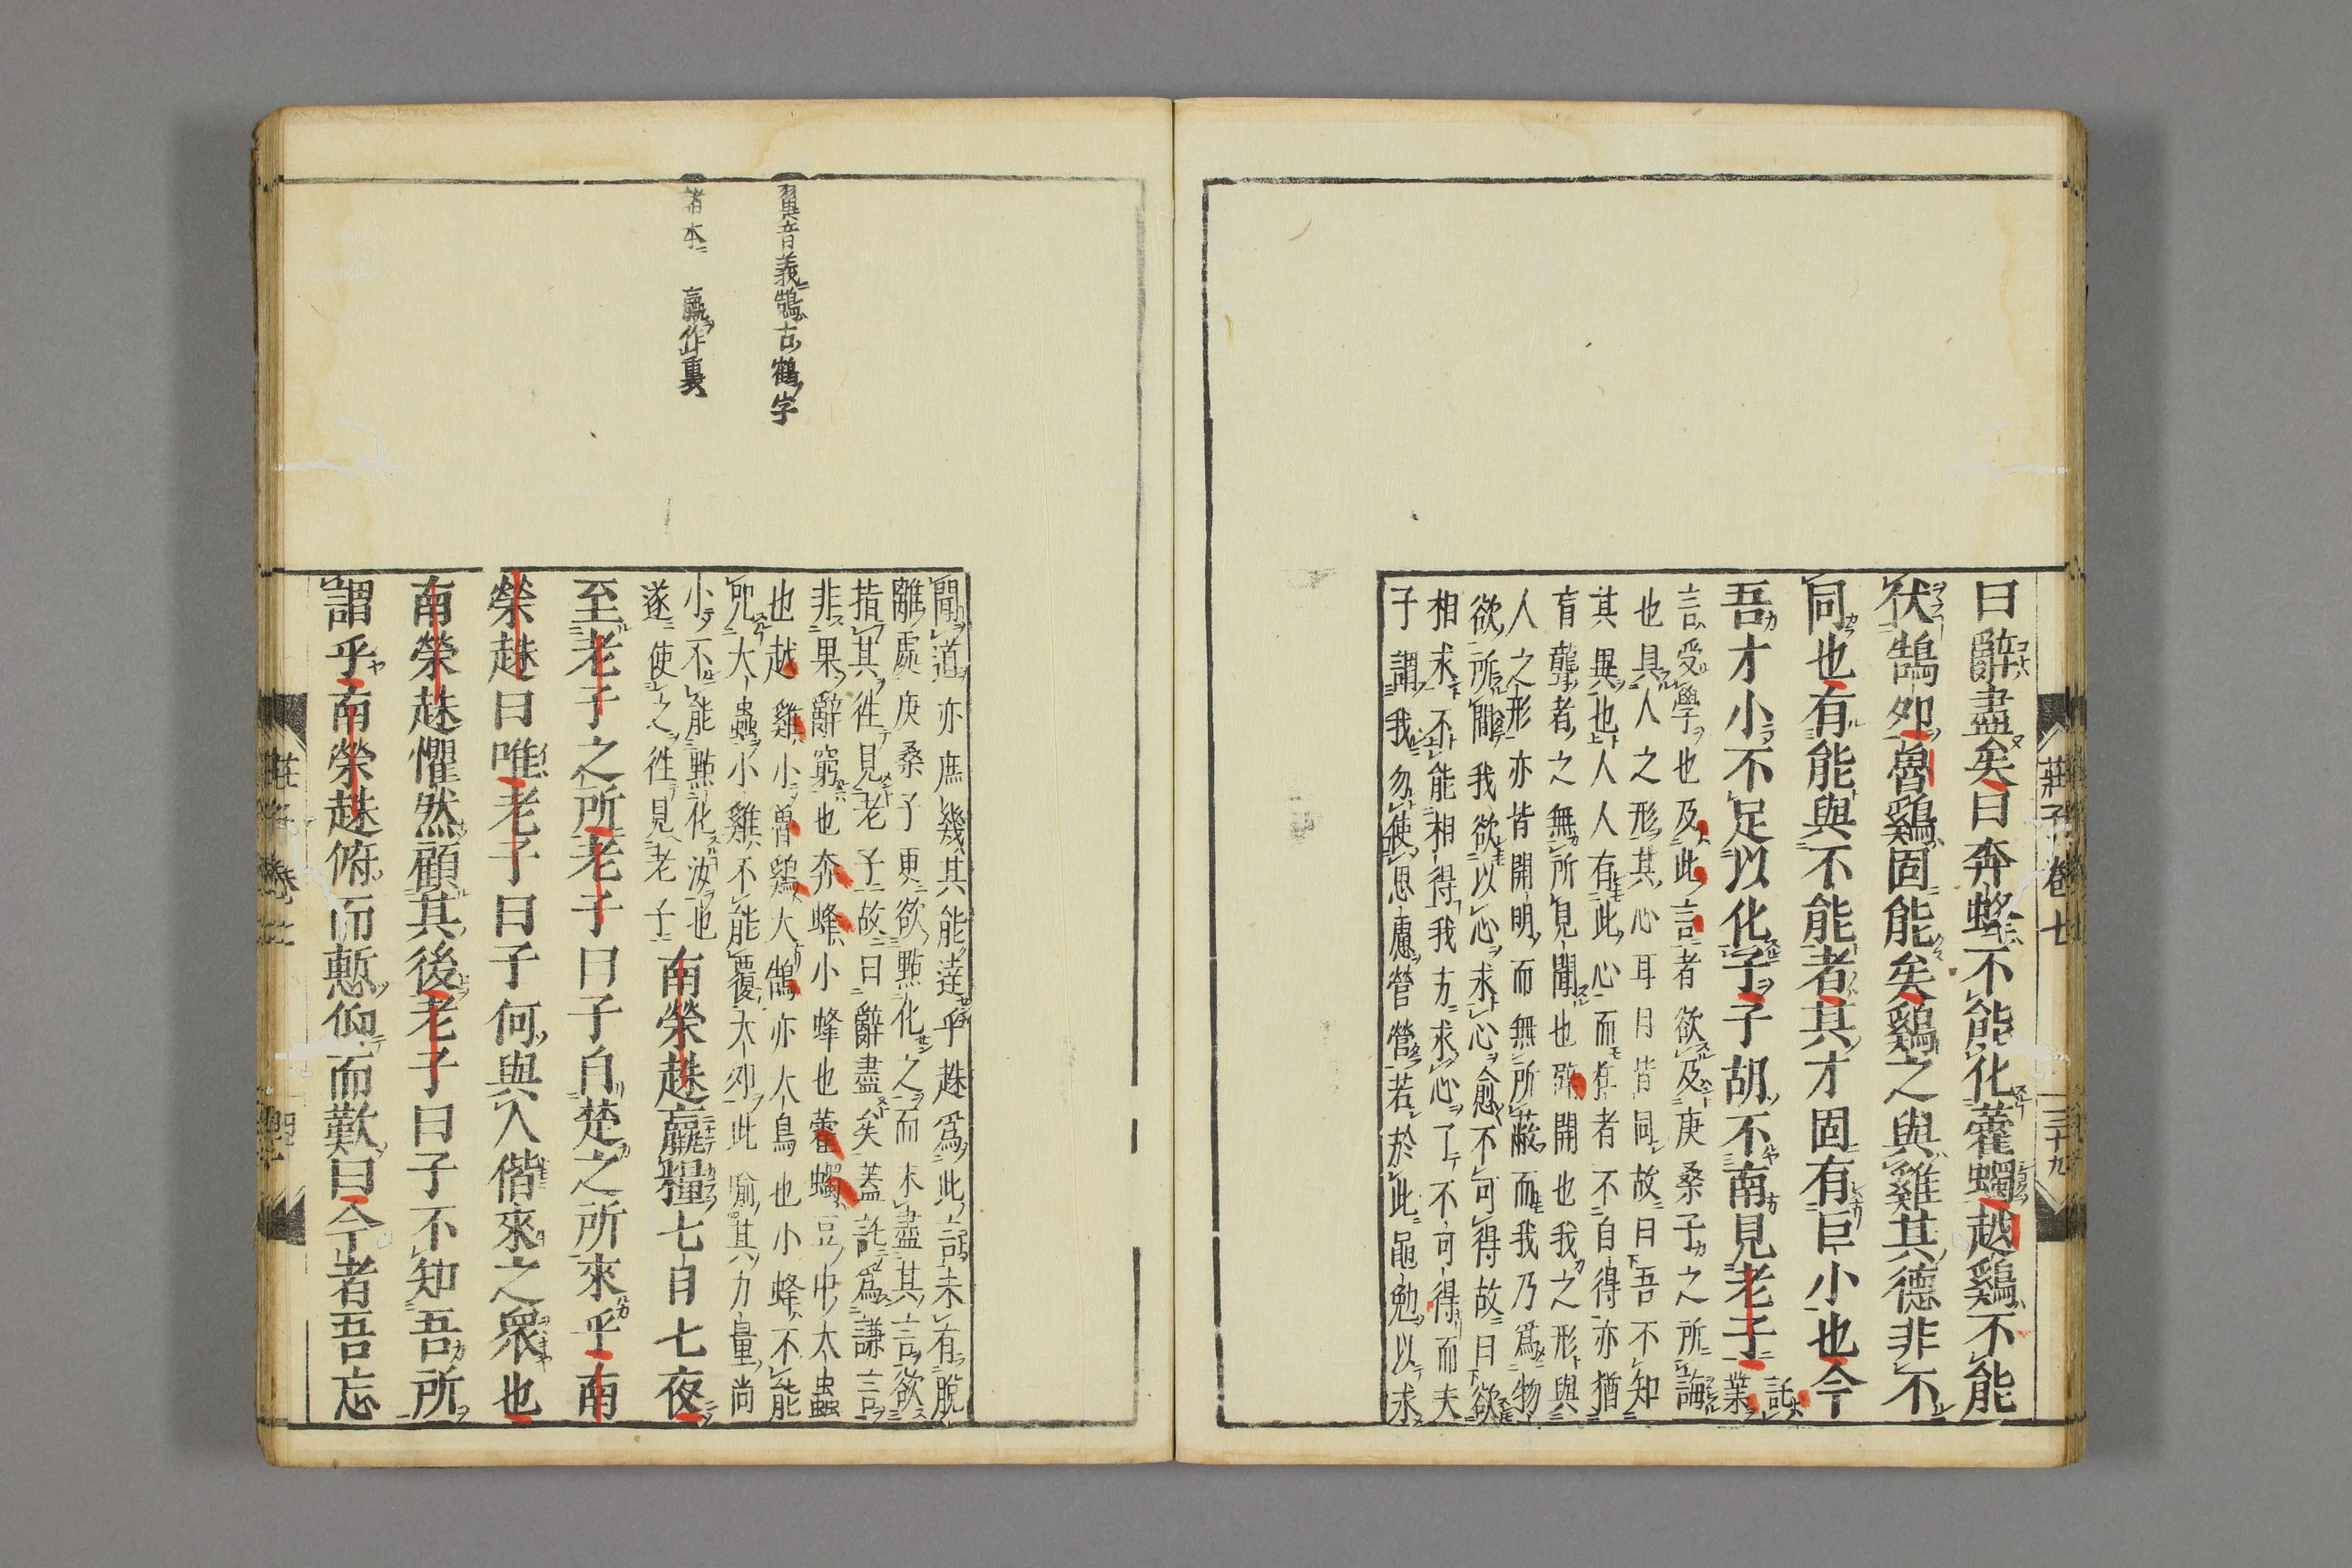 莊子卷七 三十九
曰辭盡矣曰奔蜂不能化藿蠋越鷄不能
伏鵠卵魯鷄固能矣鷄之與雞其德非不
同也有能與不能者其才固有巨小也今
吾才小不足以化子子胡不南見老子託業
言受學也及此言者欲及庚桑子之所誨
也具人之形其心耳目皆同故曰吾不知
其異也人人有此心而狂者不自得亦猶
盲聾者之無所見聞也辟開也我之形與
人之形亦皆開明而無所蔽而我乃爲物
欲所間我欲以心求心愈不可得故曰欲
相求不能相得我方求心了不可得而夫
子謂我勿使思慮營營若於此黽勉以求
聞道亦庶幾其能達乎趎爲此言未有脫
離處庚桑子更欲點化之而未盡其言欲
指其往見老子故曰辭盡矣蓋託爲謙言
非果辭窮也奔蜂小蜂也藿蠋豆中大蟲
也越雞小魯鷄大鵠亦大鳥也小蜂不能
咒大蟲小雞不能覆大卵此喻其力量尚
小不能點化汝也
遂使之往見老子南榮趎贏糧七日七夜
至老子之所老子曰子自楚之所來乎南
榮趎曰唯老子曰子何與人偕來之衆也
南榮趎懼然顧其後老子曰子不知吾所
謂乎南榮趎俯而慙仰而歎曰今者吾忘
翼音義鵠古鶴字
諸本贏作裹